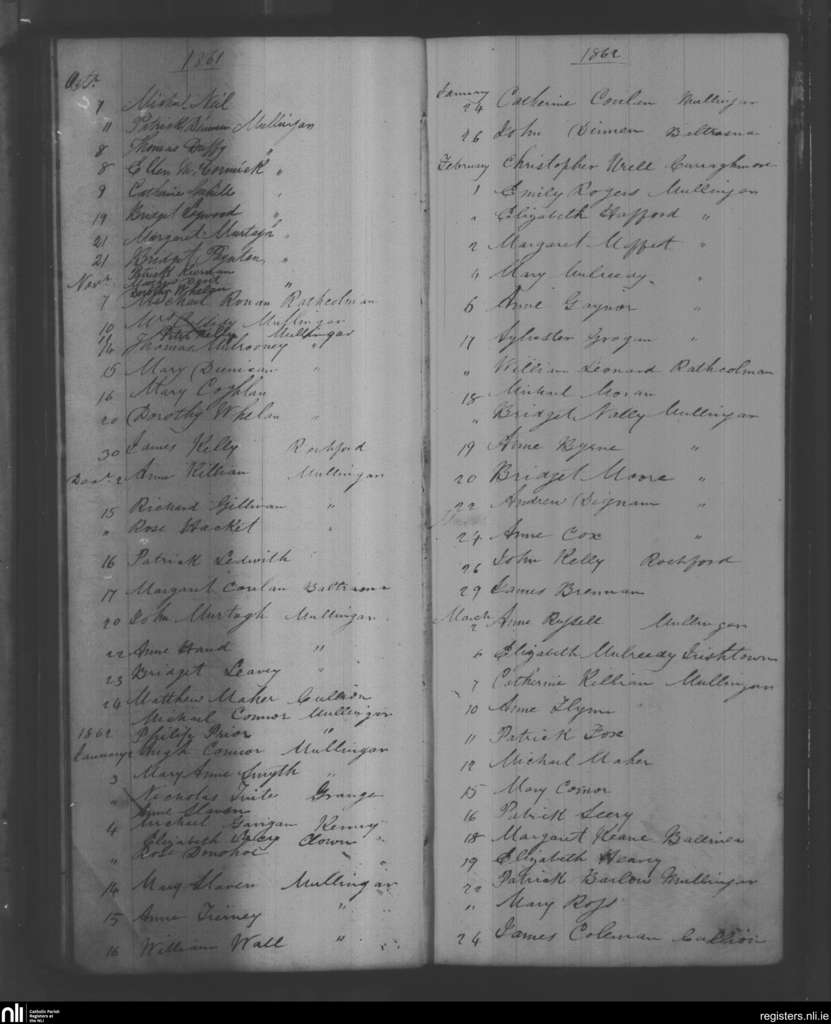 1861
Oct.
7 Michal Neil
11 Patrick Dinnen Mullingar
8 Thomas Duffy "
8 Ellen McCormick "
9 Catharine White "
19 Bridget
21 Margaret Murtagh "
21 Bridget "
Patrick Kiernan
Novr.
Dorothy Whelan "
7 Michael Ronan Rathcolman
10 Mullingar
11 Peter Kelly Mullingar
14 Thomas Mulrooney "
15 Mary Duncan "
16 Mary Coghlan
20 Dorothy Whelan "
30 James Kelly Rochford
Decr. 2 Anne Killian Mullingar
15 Richard Gillivan "
" Rose Hacket "
16 Patrick Ledwith
17 Margaret Conlan Baltrasna
20 John Murtagh Mullingar
22 Anne Hand "
23 Bridget Leavy "
24 Matthew Maher Cullion
Michael Connor Mullingar
1862 Philip Prior "
January Hugh Connor Mullingar
3 Mary Anne Smyth "
" Nicholas Tuite Grange
Anne Slaven
4 Michael Gavigan Kenny
Elizabeth Clown "
" Rose Donohoe "
14 Mary Slaven Mullingar
15 Anne Tierney "
16 William Wall "
1862
January
24 Catherine Conlan Mullingar
26 John Dinnen Baltrasna
February Christopher Urell Curraghmore
1 Emily Rogers Mullingar
" Elizabeth Stafford "
2 Margaret Moffett "
4 Mary Mulready "
6 Anne Gaynor "
17 Sylvester Grogan "
" William Leonard Rathcolman
18 Michael Moran
" Bridget Nally Mullingar
19 Anne Byrne "
20 Bridget Moore "
22 Andrew Dignam "
24 Anne Cox "
26 John Kelly Rochford
29 James Brennan
March
2 Anne Russell Mullingar
4 Elizabeth Mulready Irishtown
7 Catherine Killian Mullingar
10 Anne Flynn
11 Patrick Fox
12 Michael Maher
15 Mary Connor
16 Patrick Seery
18 Margaret Keane Ballinea
19 Elizabeth Heavey
22 Patrick Barlow Mullingar
" Mary Ross
24 James Coleman Cullion
nli Catholic Parish Registers at the NLI
registers.nli.ie